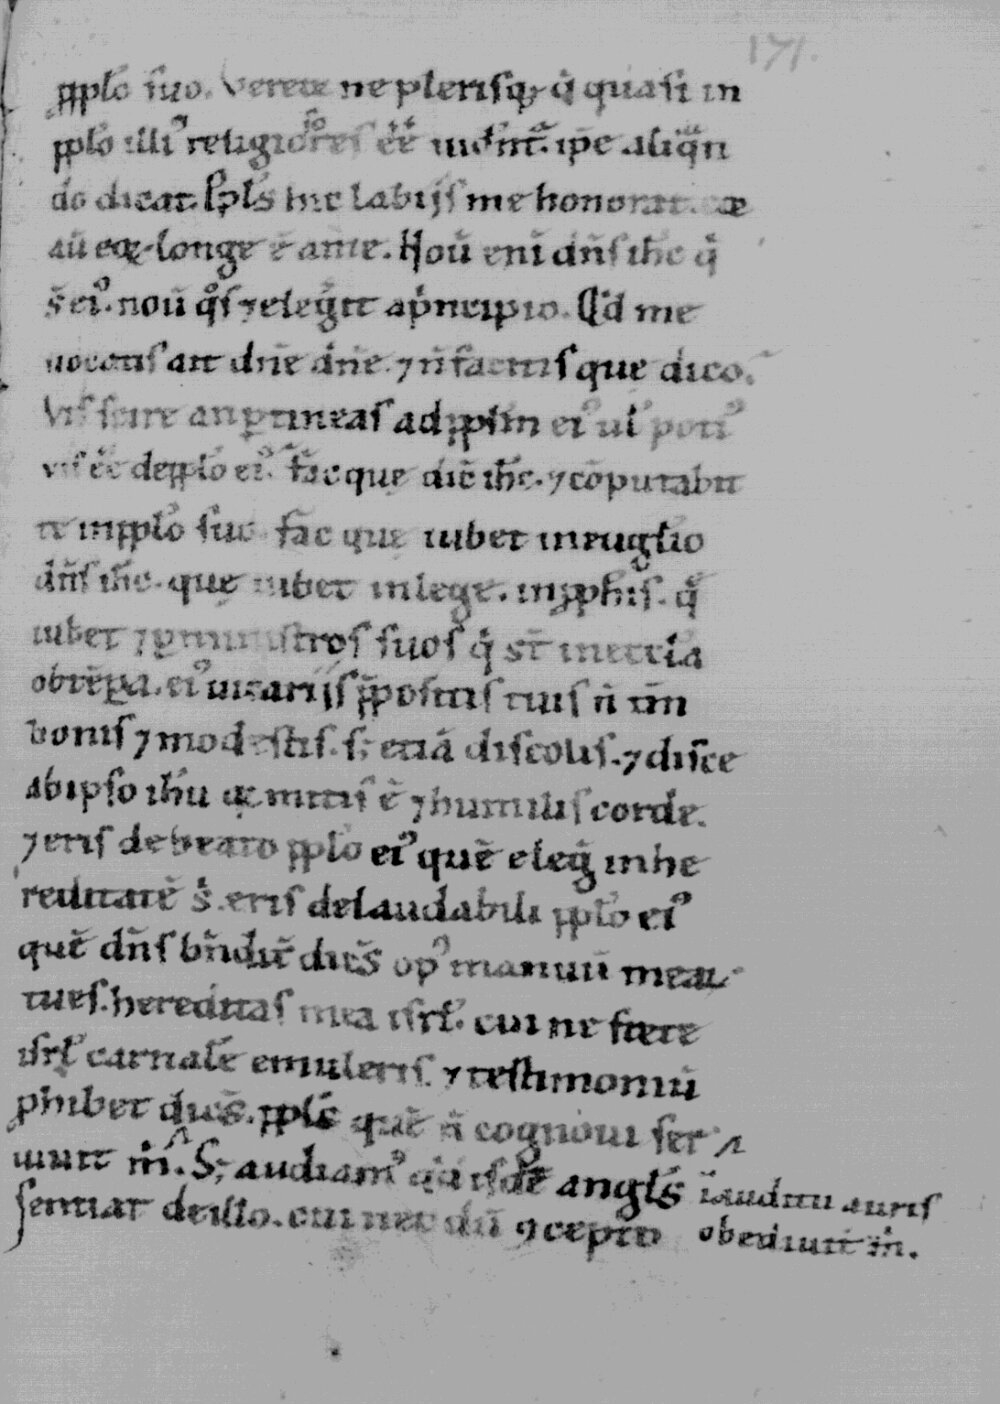 171.
p̄plo suo. Verere ne plerisq; q̊ quasi in
p̄plo illiꝰ religiores eē iudicāt. ip̄e aliqn̄
do dicat. P̄pls hic labijs me honorat. cor
aū eoꝝ longe ē a me. Nouit eni dn̄s ih̄c q̊
s̄ eiꝰ. nouit q̊s ⁊ elegit a principio. Qd me
uocatis ait dn̄e dn̄e. ⁊ n̄ facitis que dico.
Vis scire an ꝑtineas ad p̄plm eiꝰ ul potiꝰ
vis eē de p̄plo eiꝰ. fac que dic̄ ih̄c. ⁊ cōputabit
te in p̄plo suo. fac que iubet in euglio
dn̄s ih̄c. que iubet in lege. in ꝓphis. q̄
iubet ⁊ ꝑ ministros suos q̊ st̄ in eccla
obtēꝑa. eiꝰ uicarijs p̄positis tuis n̄ tm̄
bonis ⁊ modestis. s; etiā discolis. ⁊ disce
ab ipso ih̄u qꝛ mitis ē ⁊ humilis corde.
⁊ eris de beato p̄plo eiꝰ quē eleḡ in he
reditatē s̄. eris de laudabili p̄plo eiꝰ
quē dn̄s bn̄dic̄ dicēs opꝰ manuū mea⁊
tu es. hereditas mea isrl. cui ne forte
isrl carnalē emuleris. ⁊ testimoniū
phibet dicēs. p̄pls quē n̄ cognoui ser
uiuit m̄. S; audiamꝰ qd isdē angls in auditu auris
sentiat de illo. cui nec dū ꝯcepto obediuit m̄.